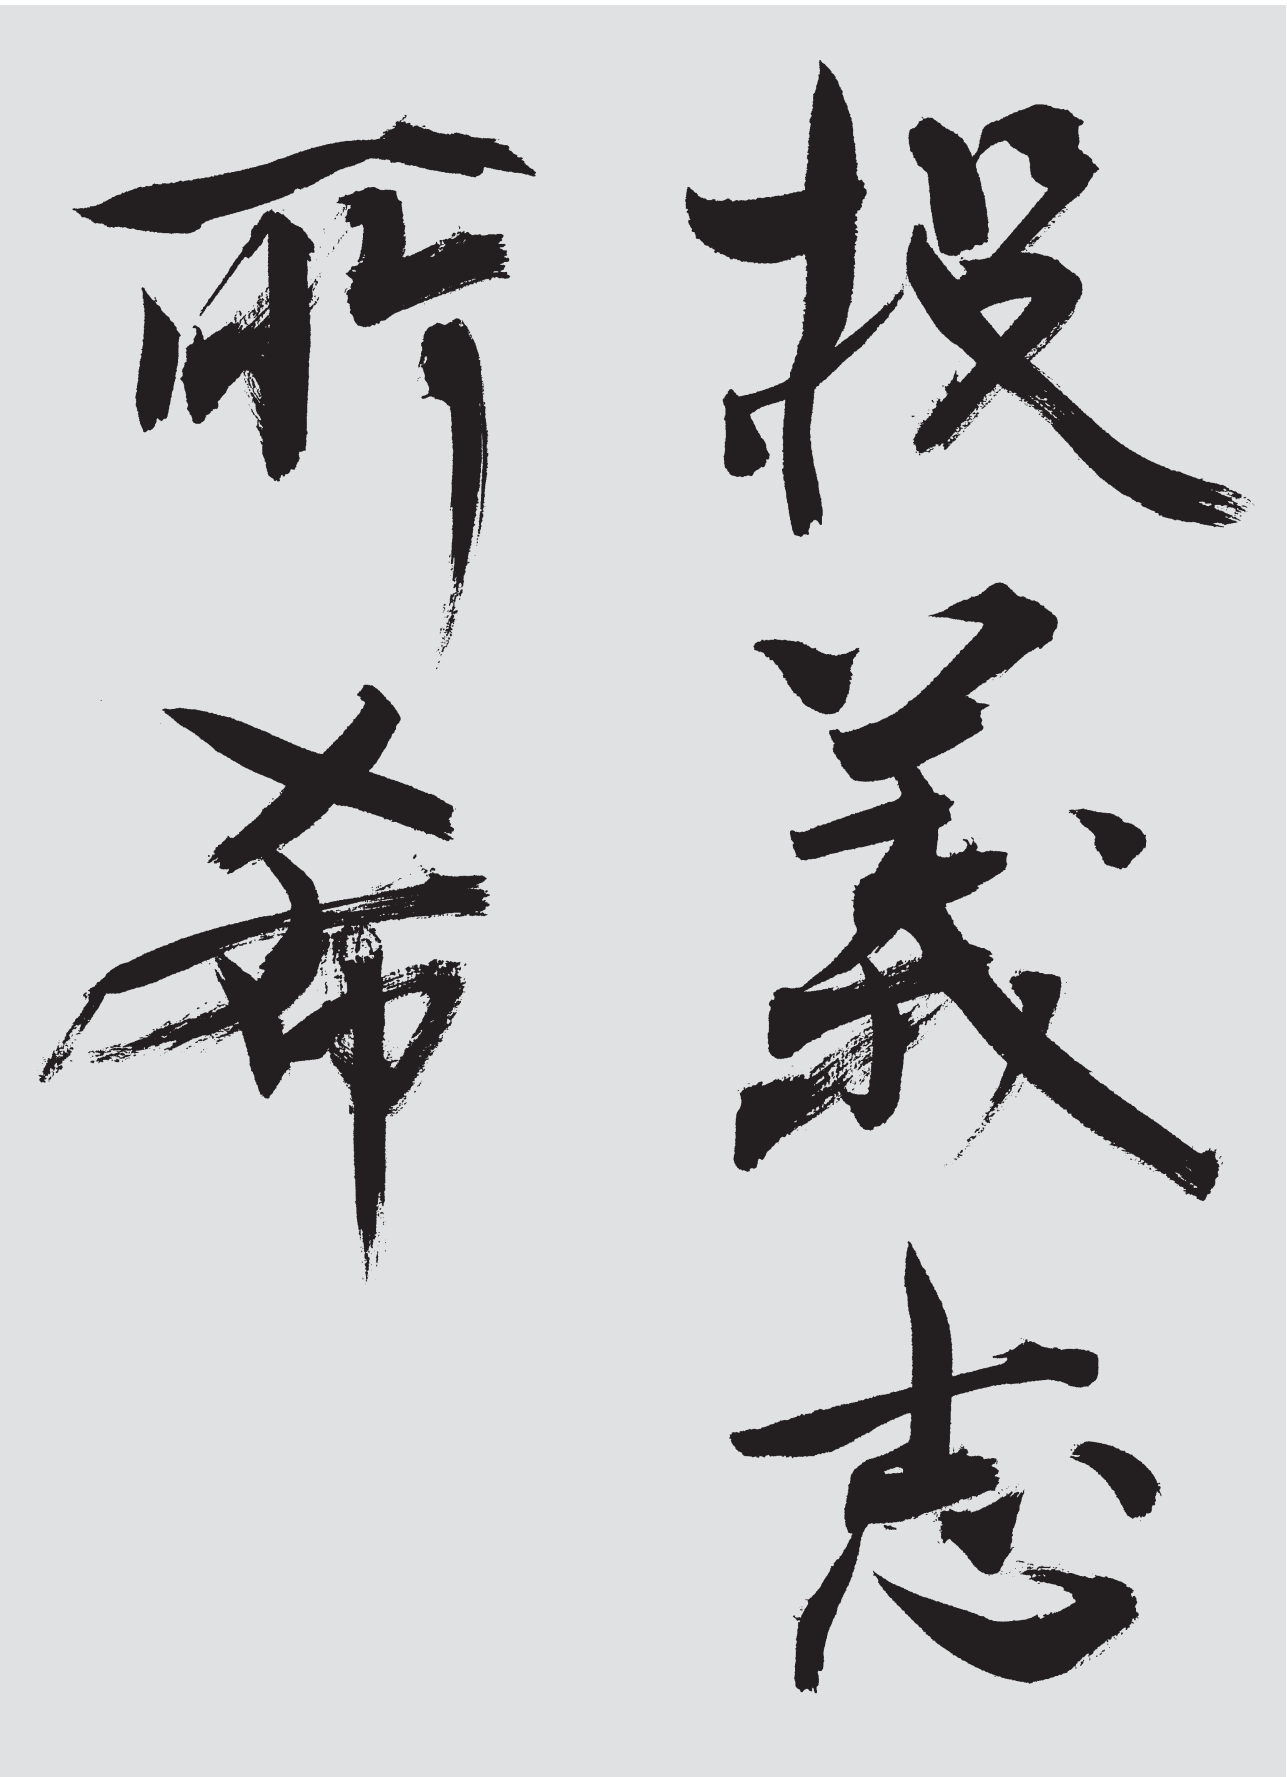 投義志
所希